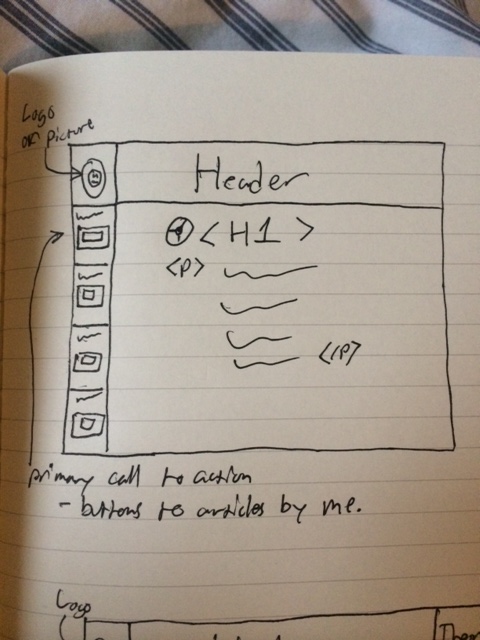 Logo
or picture
Header
<H1>
<P>
</P>
primary call to action
- buttons to articles by me.
Logo